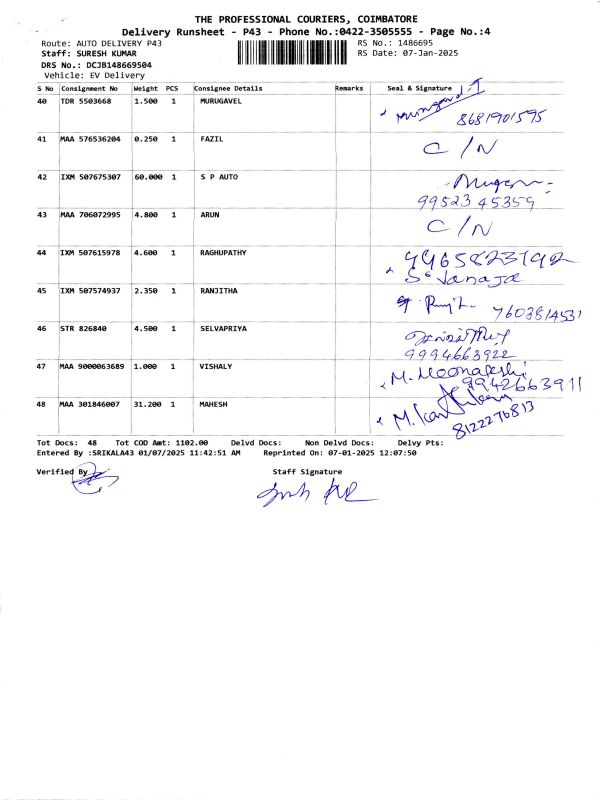 THE PROFESSIONAL COURIERS, COIMBATORE
Delivery Runsheet - P43 - Phone No.:0422-3505555 - Page No.:4
Route: AUTO DELIVERY P43 RS No.: 1486695
Staff: SURESH KUMAR RS Date: 07-Jan-2025
DRS No.: DCJB148669504
Vehicle: EV Delivery
S No Consignment No Weight PCS Consignee Details Remarks Seal & Signature
40 TDR 5503668 1.500 1 MURUGAVEL
8681901595
41 MAA 576536204 0.250 1 FAZIL C/N
42 IXM 507675307 60.000 1 S P AUTO
99523 45359
43 MAA 706072995 4.800 1 ARUN C/N
44 IXM 507615978 4.600 1 RAGHUPATHY
S. Vanaja
45 IXM 507574937 2.350 1 RANJITHA 7603814531
46 STR 826840 4.500 1 SELVAPRIYA
9994663922
47 MAA 9000063689 1.000 1 VISHALY M. Meenakshi
9942663911
48 MAA 301846007 31.200 1 MAHESH
8122276813
Tot Docs: 48 Tot COD Amt: 1102.00 Delvd Docs: Non Delvd Docs: Delvy Pts:
Entered By :SRIKALA43 01/07/2025 11:42:51 AM Reprinted On: 07-01-2025 12:07:50
Verified By Staff Signature